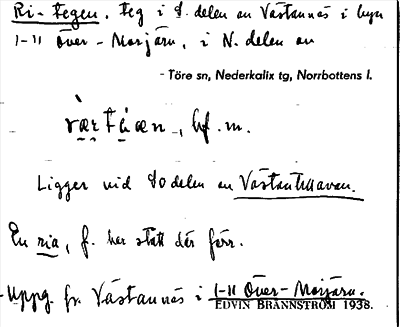 Ri-tegen. teg i S. delen av Västannäs i byn
1-11 över-Morjärn, i N. delen av
- Töre sn, Nederkalix tg, Norrbottens l.
bf. m.
Ligger vid SO delen av Västantillavan.
En ria, f. har stått där förr.
- Uppg. fr. Västannäs i 1-11 Över-Morjärn.
EDVIN BRÄNNSTRÖM 1938.